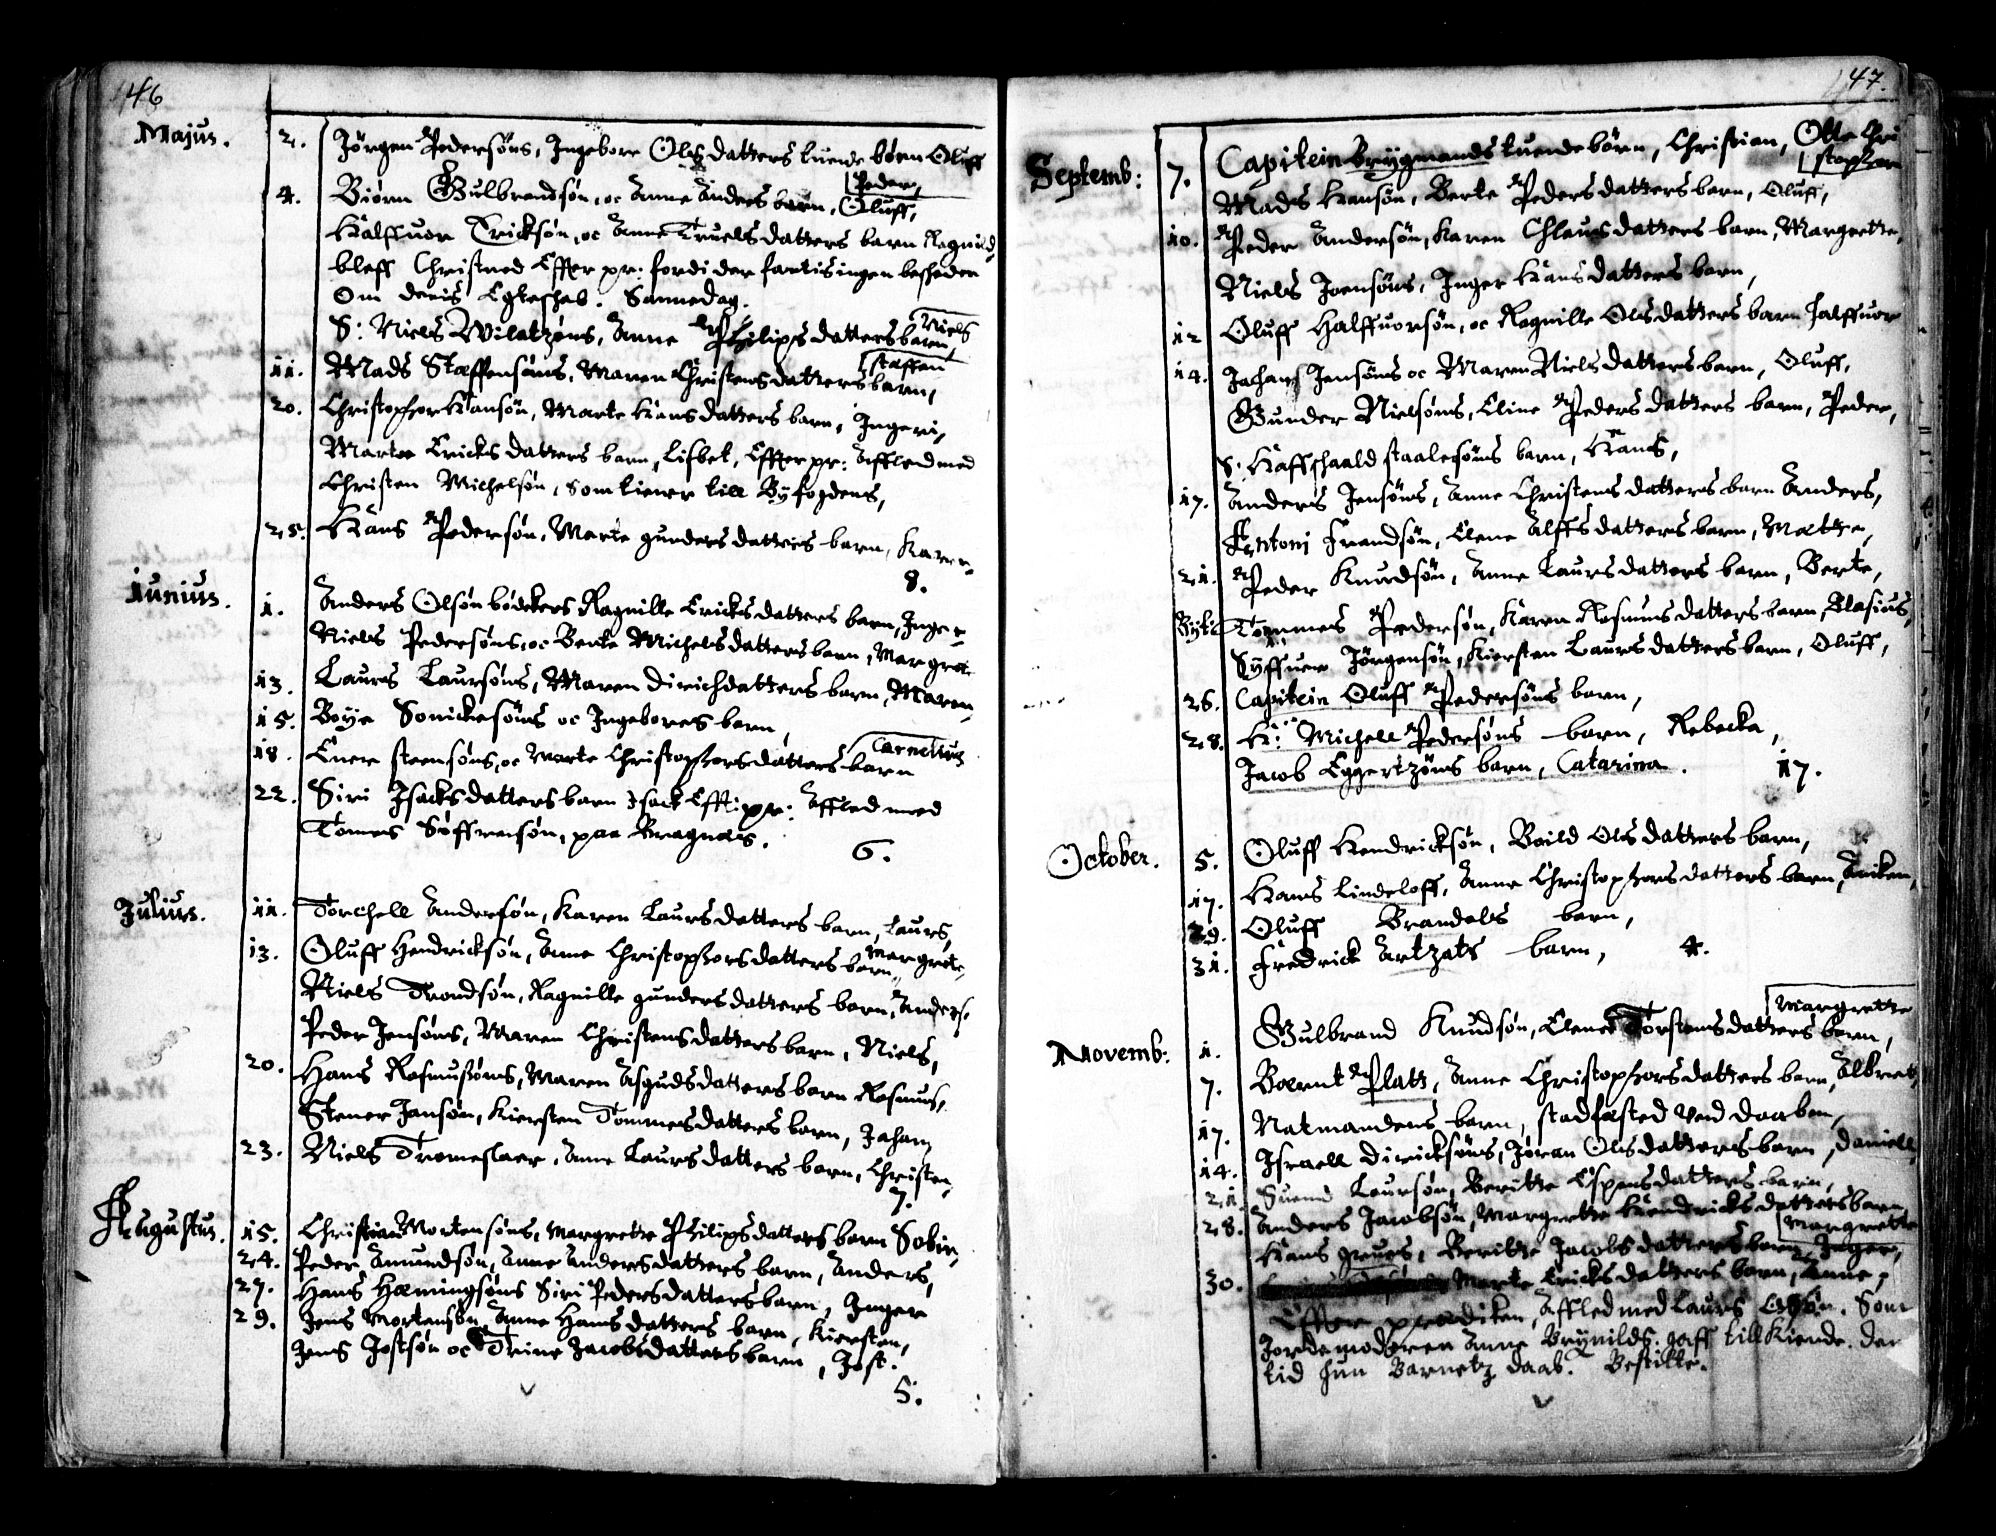 46
Majus.
2. Jörgen Pedersöns, Ingebore Olsdatters tuende börn Oluff
Peder,
4. Biörn Gulbrandsön, oc Anne Anders barn, Oluff,
Halffuor Ericksön, oc Anne Truelsdatters barn Ragnild
bleff Christned Effter pr: fordi der fantis ingen besheden
Om deris Egteshab. Sannedag.
Niels
S: Niels Wilatzöns, Anne Philipsdatters barn,
Staffen
11. Mads Staffensöns, Maren Christensdatters barn,
20. Christopher Hansön, Marte Hansdatters barn, Ingeri,
Marte Ericksdatters barn, Lisbet, Effter pr: Affled med
Christen Michelsön, som tiener till Byfogdens,
25. Hans Pedersön, Marte gundersdatters barn, Karen
8.
Iunius.
1. Anders Olsön bödekers Ragnille Ericksdatters barn, Inger
Niels Pedersöns, oc Berte Michelsdatters barn, Margrete
13. Laurs Laursöns, Maren Dirichdatters barn, Maren
15. Boye Sönickesöns oc Ingebores barn,
Carnelius
18. Ener steensöns, oc Marte Christophersdatters barn
22. Siri Isacksdatters barn Isack Efft: pr: Affled med
Tomes Söffrensön, paa Bragnæs.
6.
Julius.
11. Torchell Andersön, Karen Laursdatters barn, Laurs,
13. Oluff Hendricksön, Anne Christophersdatters barn, Margrete
Niels Trondsön, Ragnille gundersdatters barn, Anders.
Peder Jensöns, Maren Christensdatters barn, Niels,
20. Hans Rasmusöns, Maren Asgudsdatters barn Rasmus,
Stener Jansön, Kiersten Tommesdatters barn, Johan,
23. Niels Tromeslaer, Anne Laursdatters barn, Christen,
7.
Augustus.
15. Christian Mortensöns, Margrete Philipsdatters barn
24. Peder Amundsön, Anne Andersdatters barn, Anders,
27. Hans Hemingsöns Siri Pedersdatters barn, Inger
29. Jens Mortensön, Anne Hansdatters barn, Kiersten,
Jens Jostsön oc Trine Jacobsdatters barn, Jost.
5.
47.
Septemb:
7. Capitein Brygmands tuende börn, Christian, Otte Chri
stopher
Mads Hansön, Berte Pedersdatters barn, Oluff,
10. Peder Andersön, Karen Chlausdatters barn, Margrette,
Niels Joensöns, Inger Hansdatters barn,
12 Oluff Halffuorsön, oc Ragnille Olsdatters barn Halffuor
14. Johans Jensöns oc Maren Nielsdatters barn, Oluff,
Gunder Nielsöns, Eline Pedersdatters barn, Peder,
S: staalesöns barn, Hans,
17. Anders Jensöns, Anne Christensdatters barn Anders,
Antoni Frandsön, Elene Alffsdatters barn, Mætte,
21. Peder Knudsön, Anne Laursdatters barn, Berte,
Tommes Pedersön, Karen Rasmusdatters barn, Blasius,
Syffuer Jörgensön, Kiersten Laursdatters barn, Oluff,
26. Capitein Oluff Pedersöns barn,
28. H: Michell Pedersöns barn, Rebecka,
Jacob Eggertzöns barn, Catarina.
17.
October.
5. Oluff Hendricksön, Boild Olsdatters barn,
17. Hans Lindeloff, Anne Christophersdatters barn, Aniken,
29. Oluff Brandals barn,
31. Fredrick Artzats barn,
4.
Novemb:
Margrette
1. Gulbrand Knudsön, Elene Torstensdatters barn,
7. Baernt Platt, Anne Christophersdatters barn, Albret,
17. Natmandens barn, stadfæsted ved daaben,
14. Israell Diricksöns, Jöran Olsdatters barn, Daniell,
21 Suend Laursön, Beritte Espensdatters barn,
28. Anders Jacobsön, Margrette Hendricksdatters barn
Margrette
Hans Beritte Jacobsdatters barn, Inger,
30. Marte Ericksdatters barn, Anne,
Effter prædiken, Affled med Laurs Olsön. Som
Jordemoderen Anne Brynilds. gaff till Kiende. der
tid hun Barnetz daab. Bestilte.